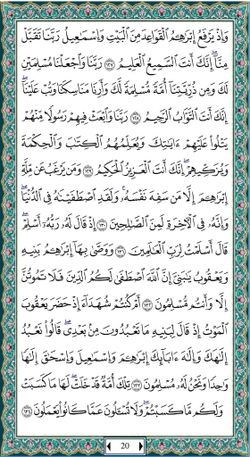 وَإِذْ يَرْفَعُ إِبْرَٰهِـۧمُ ٱلْقَوَاعِدَ مِنَ ٱلْبَيْتِ وَإِسْمَـٰعِيلُ رَبَّنَا تَقَبَّلْ
مِنَّآ ۖ إِنَّكَ أَنتَ ٱلسَّمِيعُ ٱلْعَلِيمُ ١٢٧ رَبَّنَا وَٱجْعَلْنَا مُسْلِمَيْنِ
لَكَ وَمِن ذُرِّيَّتِنَآ أُمَّةً مُّسْلِمَةً لَّكَ وَأَرِنَا مَنَاسِكَنَا وَتُبْ عَلَيْنَآ ۖ
إِنَّكَ أَنتَ ٱلتَّوَّابُ ٱلرَّحِيمُ ١٢٨ رَبَّنَا وَٱبْعَثْ فِيهِمْ رَسُولًا مِّنْهُمْ
يَتْلُوا۟ عَلَيْهِمْ ءَايَـٰتِكَ وَيُعَلِّمُهُمُ ٱلْكِتَـٰبَ وَٱلْحِكْمَةَ
وَيُزَكِّيهِمْ ۚ إِنَّكَ أَنتَ ٱلْعَزِيزُ ٱلْحَكِيمُ ١٢٩ وَمَن يَرْغَبُ عَن مِّلَّةِ
إِبْرَٰهِـۧمَ إِلَّا مَن سَفِهَ نَفْسَهُۥ ۚ وَلَقَدِ ٱصْطَفَيْنَـٰهُ فِى ٱلدُّنْيَا ۖ
وَإِنَّهُۥ فِى ٱلْـَٔاخِرَةِ لَمِنَ ٱلصَّـٰلِحِينَ ١٣٠ إِذْ قَالَ لَهُۥ رَبُّهُۥٓ أَسْلِمْ ۖ
قَالَ أَسْلَمْتُ لِرَبِّ ٱلْعَـٰلَمِينَ ١٣١ وَوَصَّىٰ بِهَآ إِبْرَٰهِـۧمُ بَنِيهِ
وَيَعْقُوبُ يَـٰبَنِىَّ إِنَّ ٱللَّهَ ٱصْطَفَىٰ لَكُمُ ٱلدِّينَ فَلَا تَمُوتُنَّ
إِلَّا وَأَنتُم مُّسْلِمُونَ ١٣٢ أَمْ كُنتُمْ شُهَدَآءَ إِذْ حَضَرَ يَعْقُوبَ
ٱلْمَوْتُ إِذْ قَالَ لِبَنِيهِ مَا تَعْبُدُونَ مِنۢ بَعْدِى قَالُوا۟ نَعْبُدُ
إِلَـٰهَكَ وَإِلَـٰهَ ءَابَآئِكَ إِبْرَٰهِـۧمَ وَإِسْمَـٰعِيلَ وَإِسْحَـٰقَ إِلَـٰهًا
وَٰحِدًا وَنَحْنُ لَهُۥ مُسْلِمُونَ ١٣٣ تِلْكَ أُمَّةٌ قَدْ خَلَتْ ۖ لَهَا مَا كَسَبَتْ
وَلَكُم مَّا كَسَبْتُمْ ۖ وَلَا تُسْـَٔلُونَ عَمَّا كَانُوا۟ يَعْمَلُونَ ١٣٤
20